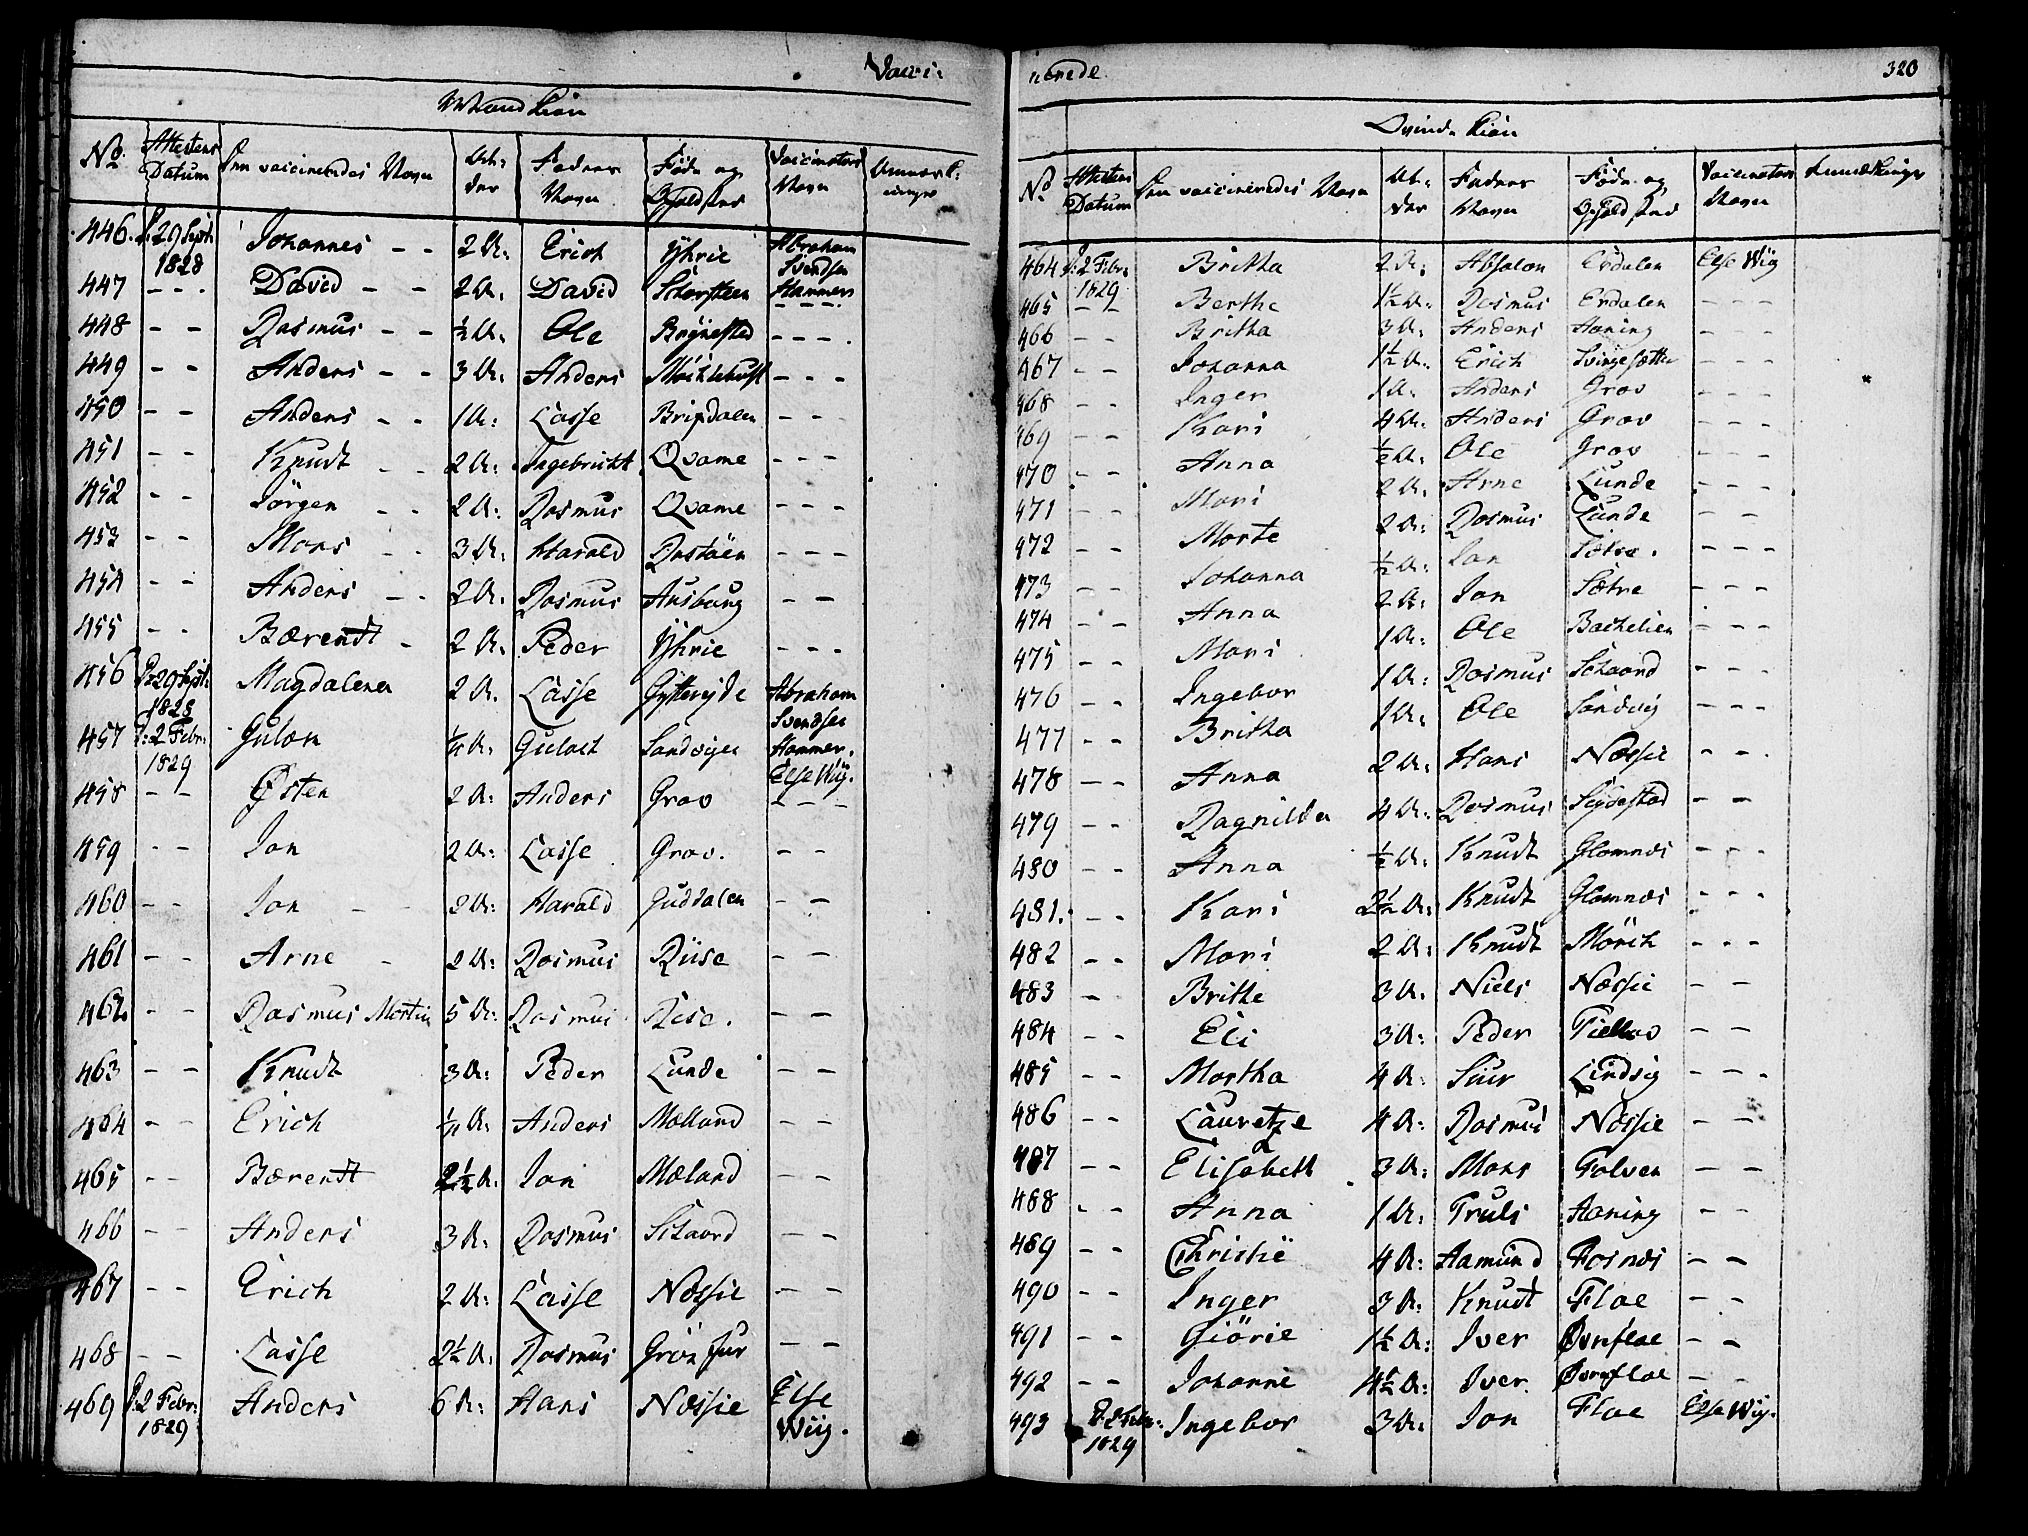 Vacci-
Mandkiøn
No. Attestens Datum Den vaccineredes Navn Al-der Faders Navn Føde og Opholdsted Vaccinators Navn Anmærk-ninger
446. d: 29 Sept: 1828 Johannes - - 2 A: Erich Yhrie Abraham Svendsen Hammer
447 - - - David - - 2 A. David Schorsteen - - -
448 - - Rasmus - - ½ A. Ole Brynestad - - - -
449 - - Anders - - 3 A: Anders - - -
450 - - Anders - - 1 A: Lasse Brixdalen - - -
451 - - Knudt - - 2 A: Ingebricht Qvame - - -
452 - - Jörgen - - 2 A: Rasmus Qvame - - -
453 - - Mons - - 3 A: Harald - - -
454 - - Anders - - 2 A: Rasmus Ausburg - -
455 - - Bærendt - 2 A: Peder Yhrie - - -
456 D: 29 Sept: 1828 Magdalena 2 A: Lasse Abraham Svendsen Hammer.
457 d: 2 Febr: 1829 ¼ A: Sandvigen Else Wiig.
458 - - Østen 2 A: Anders Grov - - -
459 - - Jon 2 A: Lasse Grov. - -
460 - - Jon - - 2 A: Harald Guddalen - -
461 - - Arne - 2 A: Rasmus Riise - -
462 - - Rasmus Martin 5 A: Rasmus Rise. - -
463 - - Knudt 3 A: Peder Lunde - -
464 - - Erich ¼ A: Anders Mælland - -
465 - - Bærendt 2½ A. Jon Mæland - -
466 - - Anders 3 A: Rasmus Schaard - -
467 - - Erich 2 A: Lasse Næssie - -
468 - - Lasse 2½ A: Rasmus - -
469 d: 2 Febr: 1829 Anders 6 A: Hans Næssie Else Wiig.
nerede. 320
Qvindekiön
No Attestens Datum Den vaccineredes Navn Al-der Faders Navn Føde og Opholdsted Vaccinators Navn Anmærkninger
464 d: 2 Febr: 1829 Britha 2 A: Absalon Erdalen Else Wiig
465 - - Berthe 1½ A: Rasmus Erdalen - - -
466 - - Britha 3 A: Anders Aaning - - -
467 - - Johanna 1½ A: Erich Svingesætter - - -
468 - - Inger 1 A: Anders Grov - - -
469 - - Kari 4 A: Anders Grov - - -
470 - - Anna ½ A: Ole Grov - - -
471 - - Mari 2 A: Arne Lunde - - -
472 - - Marte 2 A: Rasmus Lunde - -
473 - - Johanna ½ A: Jon Sætre. - - -
474 - - Anna 2 A: Jon Sætre - - -
475 - - Mari 1 A: Ole Bachelien - - -
476 - - Ingebor 1 A: Rasmus Schaard - - -
477 - - Britha 1 A: Ole Sandvig - - -
478 - - Anna 2 A: Hans Næssie - - -
479 - - Ragnilda 4 A: Rasmus - -
480 - - Anna ½ A: Knudt Glomnæs - - -
481. - - Kari 2½ A: Knudt Glomnæs - - -
482 - - Mari 2 A: Knudt Mörch - - -
483 - Brithe 3 A. Niels Næssie - -
484 - - Eli 3 A: Peder - -
485 - - Martha 4 A: Siur Lindvig - - -
486 - - Lauretze 4 A: Rasmus Næssie - -
487 - - Elisabeth 3 A: Mons Tolven - -
488 - - Anna 1 A: Truls Aaning - -
489 - - Christie 4 A: Aamund Fosnæs - -
490 - - Inger 3 A: Knudt Floe - -
491 - - Giörie 1½ A: Iver Øvrefloe - -
492 - - Johanne 4½ A: Iver Øvrefloe - -
493 d: 2 Febr: 1829 Ingebor 3 A: Jon Floe Else Wiig.